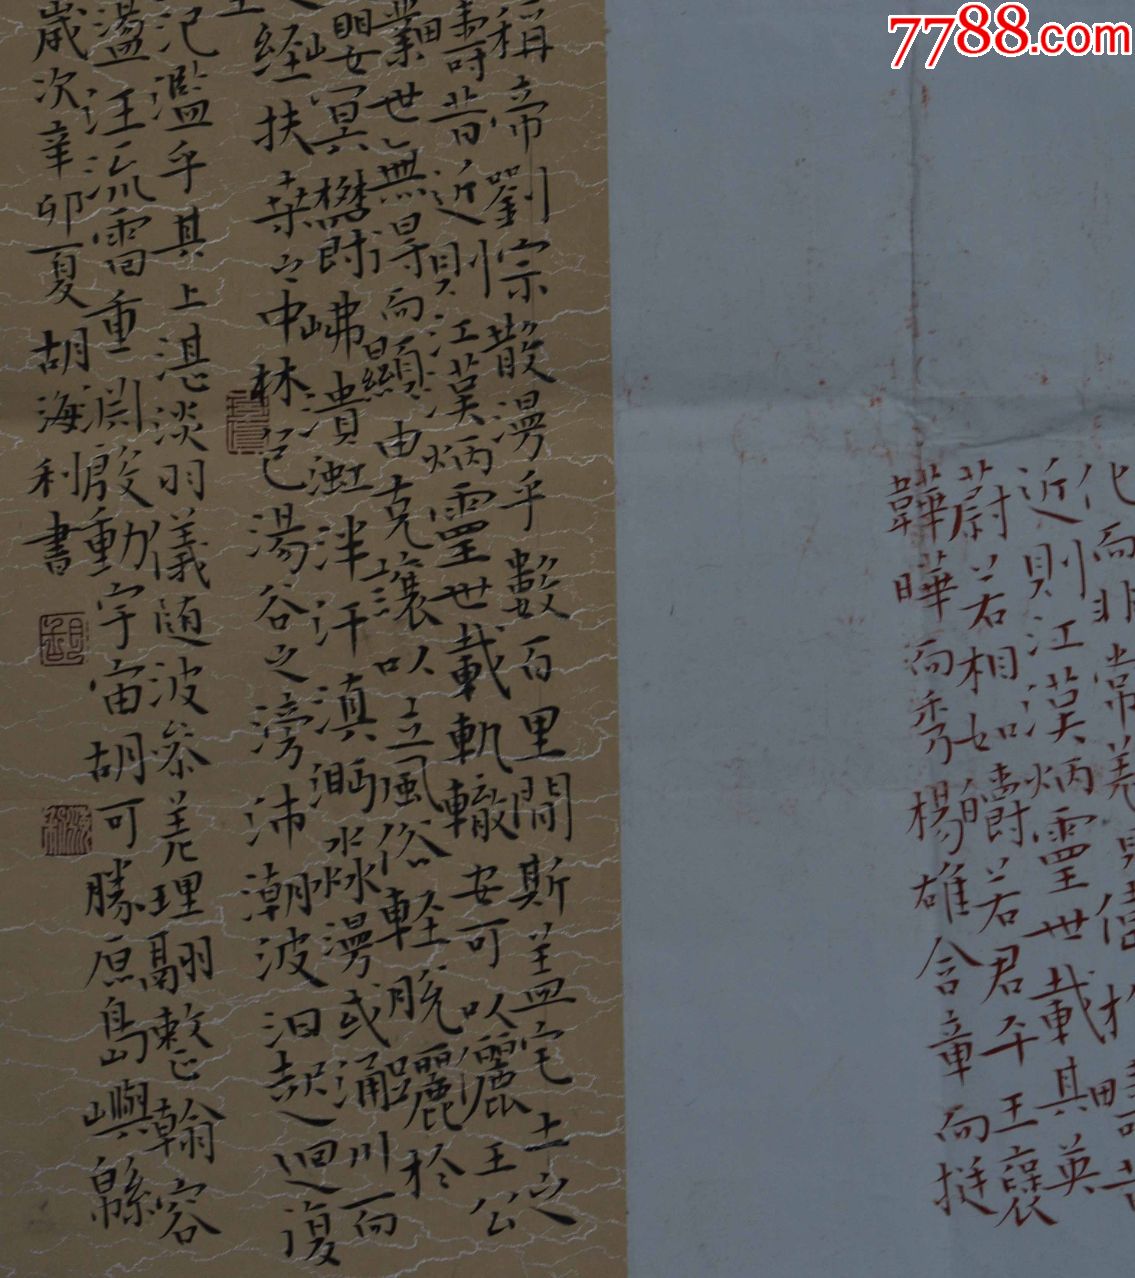 7788.com
化而非常羌見偉於疇昔
近則江漢炳靈世載其英
蔚若相如皭若君平王褒
韡曄而秀楊雄含章而挺
稱帝劉宗散漫乎數百里間斯蓋宅土之
疇昔近則江漢炳靈世載軌轍安可以儷王公
業世〻無得而顯由克讓以立風俗輕脫躧於
嬰冥鬱岪潰渱泮汗滇㴐淼漫或涌川而
之經扶桒之中林包湯谷之滂沛潮波汨起迴復
氾濫乎其上湛淡羽儀随波參差理翮整翰容
盪汪流雷重淵殷動宇宙胡可勝原島嶼緜
歲次辛卯夏胡海利書